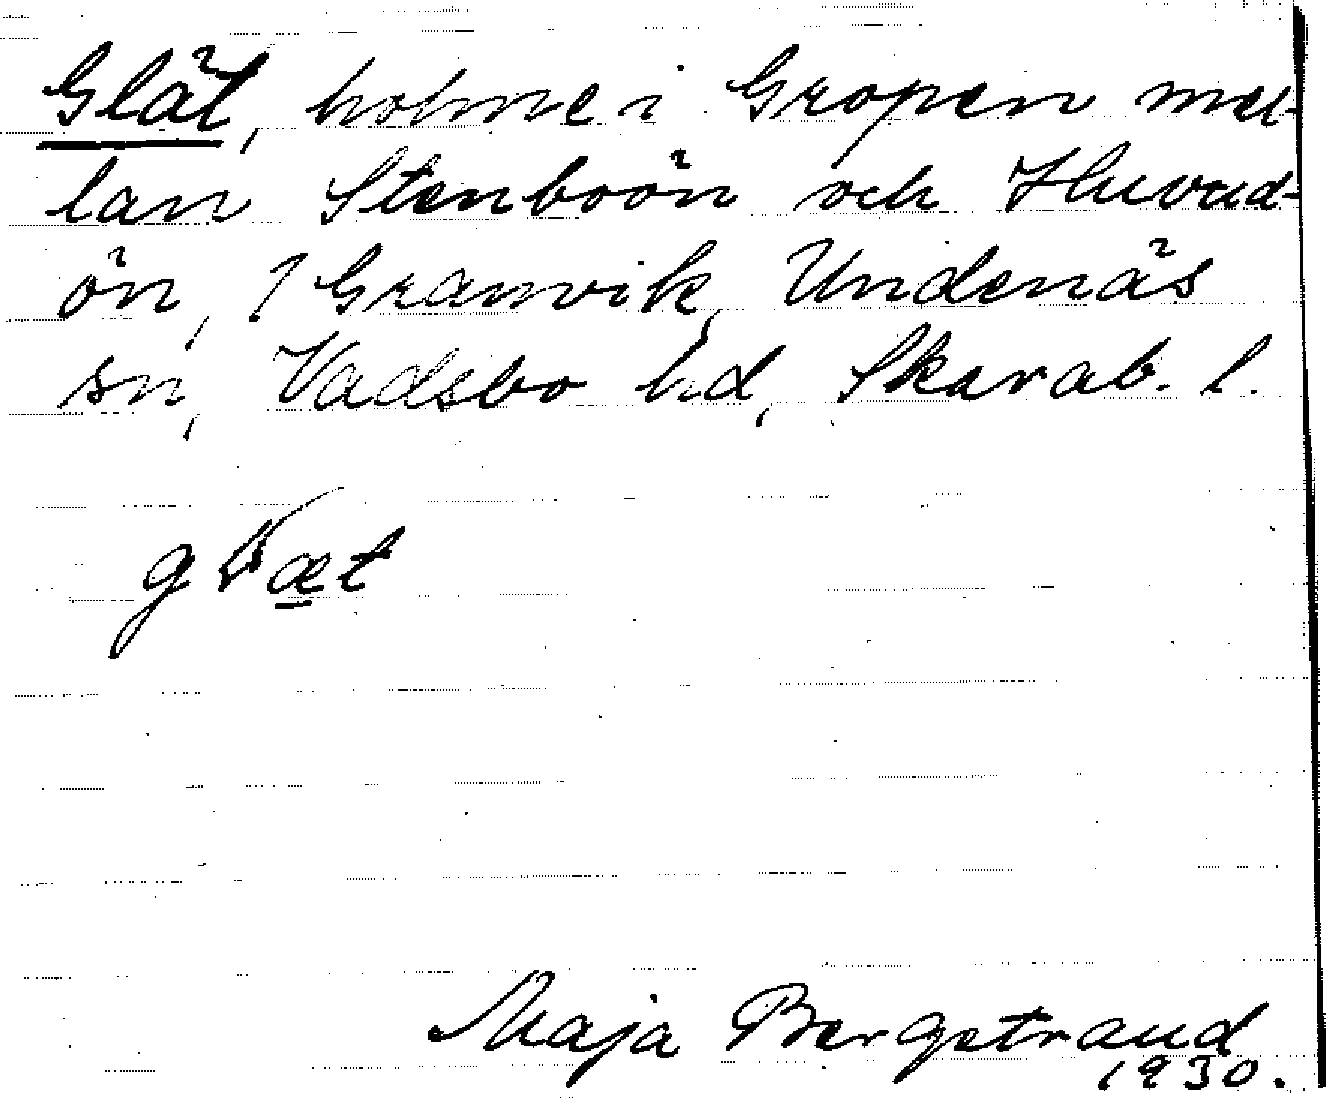 Glät, holme i Gropen mel-
lan Stenböön och Huvud-
ön, 1 Granvik, Undenäs
sn, Vadsbo hd, Skarab. l.
Maja Bergstrand
1930.